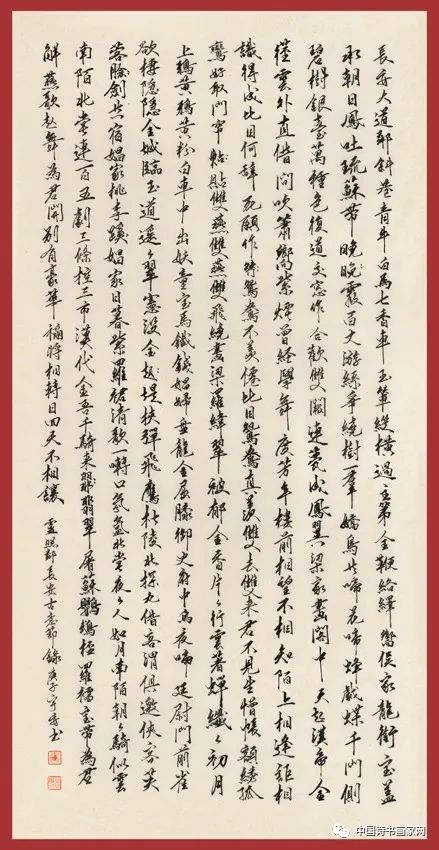 長安大道斜巷青牛白馬七香車玉輦縱橫過主第金鞭絡繹嚮侯家龍銜寶蓋
承朝日鳳吐疏蘇帶晚晚霞百丈游絲爭繞樹一羣嬌鳥共啼花啼戲蝶千門側
碧樹銀臺萬種色復道交窓作合歡雙闕連甍成鳳翼梁家畫閣中天起漢帝金
莖雲外直借問吹簫嚮紫煙曾經學舞度芳年樓前相望不相知陌上相逢詎相
識得成比目何辭死願作鴛鴦不羡僊比目鴛鴦真羡雙去雙來君不見生憎帳額繡孤
鸞好取門帘帖雙燕雙燕雙飛繞畫梁羅緯翠被郁金香片片行雲著蟬纖纖初月
上鴉黃鴉黃粉白車中出妖童寶馬鐵錢娼婦盘龍金屈膝御史府中烏夜啼廷尉門前雀
欲棲隱隱金城臨玉道遥遥翠幰沒金堤挾彈飛鷹杜陵北探丸借客渭俱邀俠客芙
蓉臉劍共宿娼家桃李蹊娼家日暮紫羅裙清歌一囀口氛氳北堂夜夜人如月南陌朝朝騎似雲
南陌北堂連百五劇三條控三市漢代金吾千騎来翡翠屠蘇鸚鵡杯羅襦寶帶為君
解燕歌趙舞為君開別有豪華稱將相轉日回天不相讓 盧照鄰長安古意節錄庚子書
中国诗书画家网